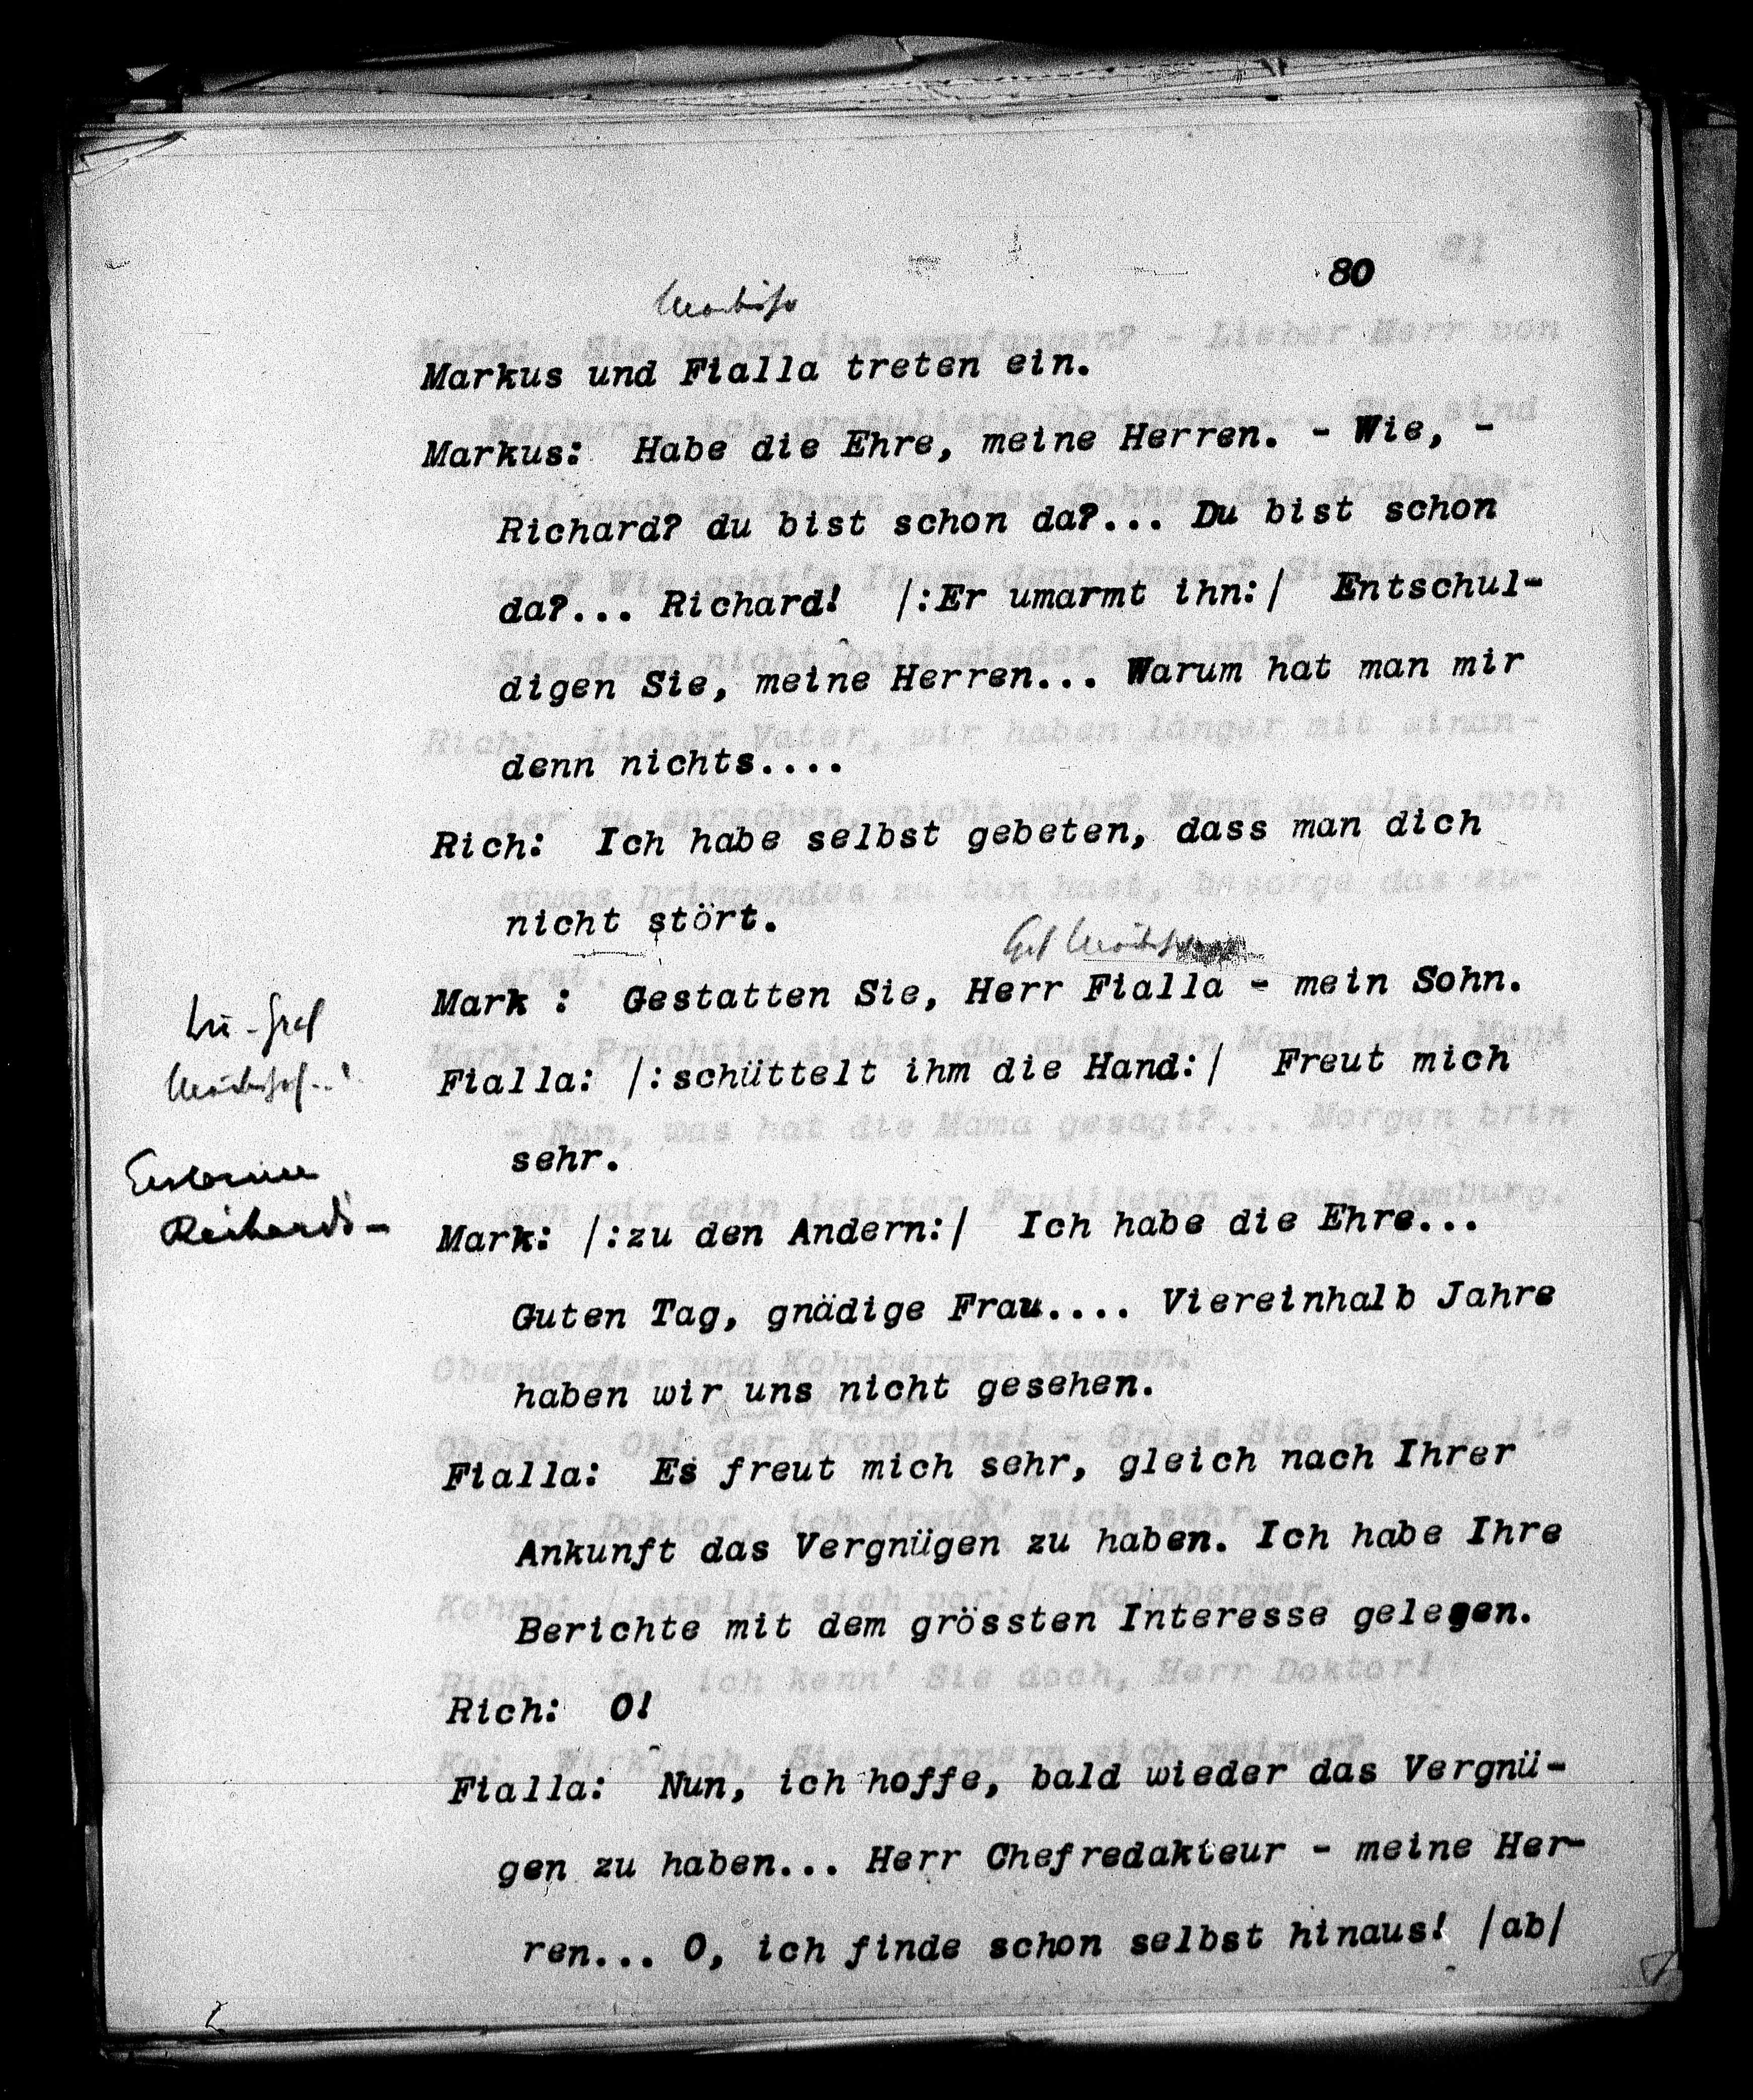 80
Markus und Fialla treten ein.
Markus: Habe die Ehre, meine Herren. - Wie, -
Richard? du bist schon da?... Du bist schon
da?... Richard! /:Er umarmt ihn:/ Entschul-
digen Sie, meine Herren... Warum hat man mir
denn nichts....
Rich: Ich habe selbst gebeten, dass man dich
nicht stört.
Mark : Gestatten Sie, Herr Fialla - mein Sohn.
Fialla: /:schüttelt ihm die Hand:/ Freut mich
sehr.
Richards -
Mark: /:zu den Andern:/ Ich habe die Ehre...
Guten Tag, gnädige Frau.... Viereinhalb Jahre
haben wir uns nicht gesehen.
Fialla: Es freut mich sehr, gleich nach Ihrer
Ankunft das Vergnügen zu haben. Ich habe Ihre
Berichte mit dem grössten Interesse gelesen.
Rich: O!
Fialla: Nun, ich hoffe, bald wieder das Vergnü-
gen zu haben... Herr Chefredakteur - meine Her-
ren... O, ich finde schon selbst hinaus! /ab/